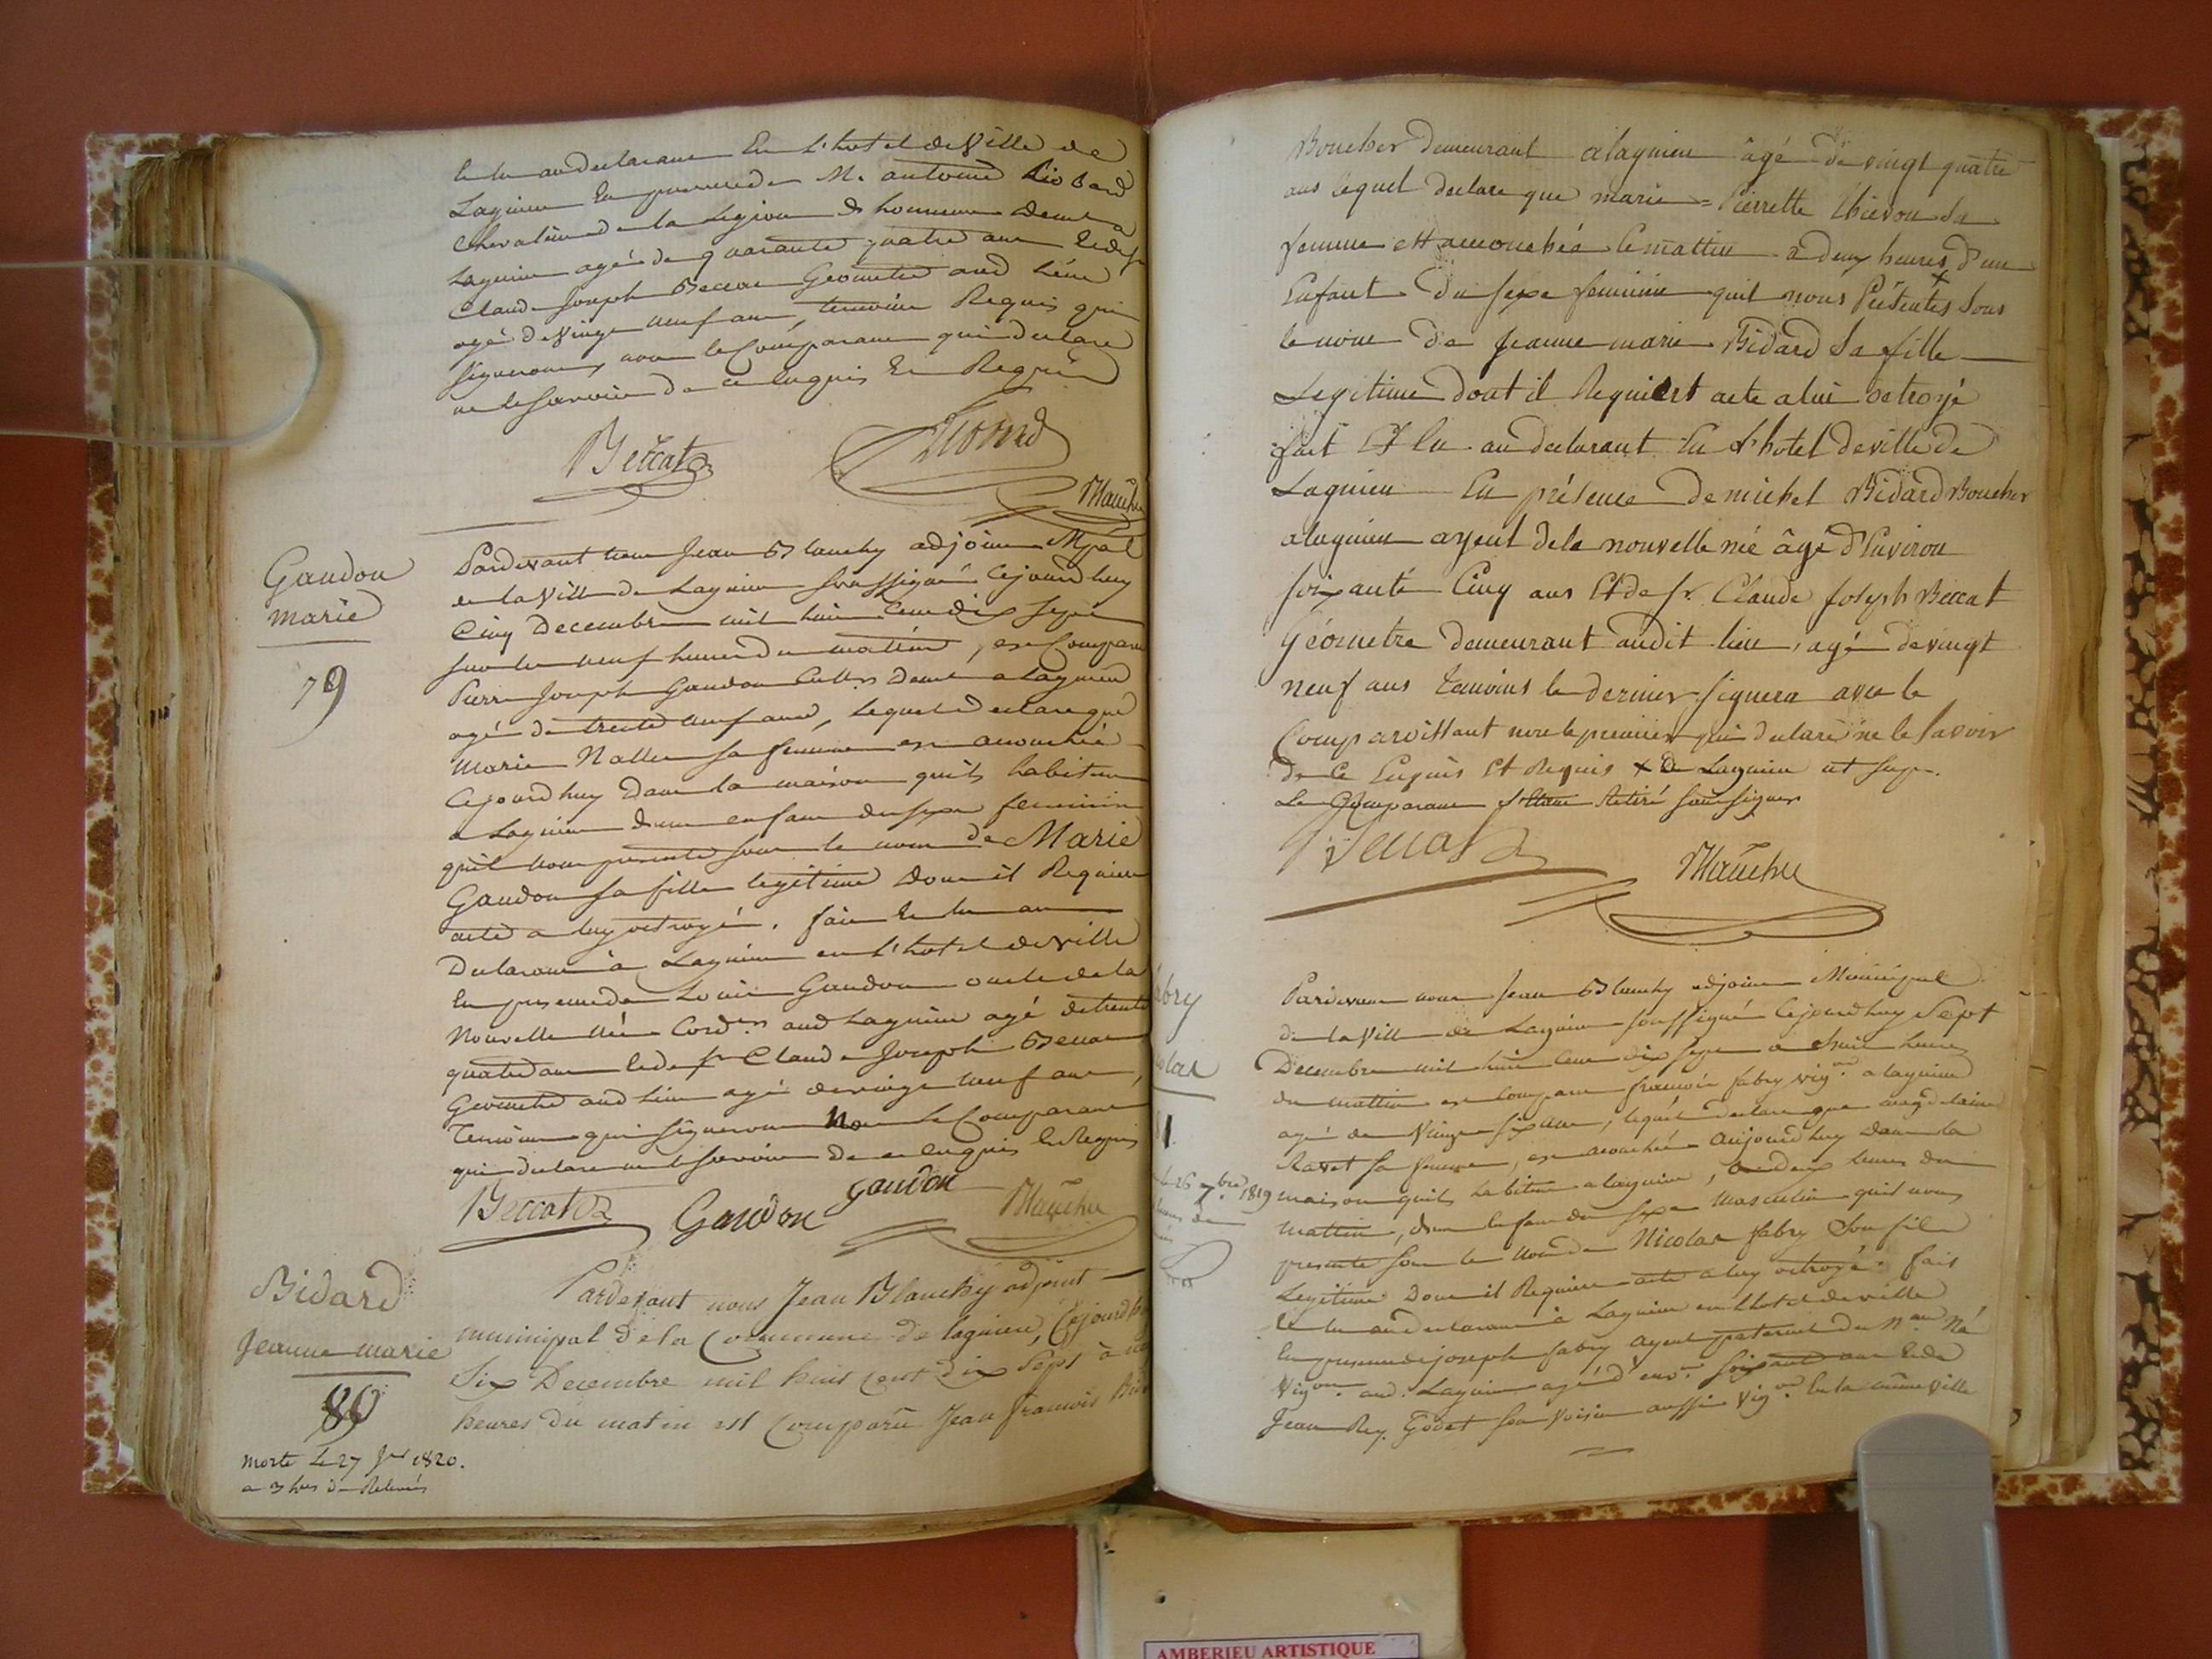 et lu au declarant En L'hotel de Ville de
Lagnieu En presence de M. antoine Riobard
Chevalier de la Legion d honneur demt a
Lagnieu agé de quarante quatre ans Et de sr
Claude Joseph Beccat Geometre aud lieu
agé de vingt neuf ans, temoins Requis qui
signeront, avec le Comparant qui declare
ne le savoir de ce Enquis Et Requis
Beccat
Blanchy
Gaudon
marie
79
Pardevant nous Jean Blanchy adjoint Mpal
de la Ville de Lagnieu soussigné Cejourd huy
Cinq Decembre mil huit Cent dix sept
sur les neuf heures du mattin, est Comparu
Pierre Joseph Gaudon Cultr demt a Lagnieu
agé de trente neuf ans, lequel declare que
Marie Nallet sa femme est accouchée
Cejourd huy dans la maison quils habitent
a Lagnieu dun enfant du sexe feminin
quil nous presente sous le nom de Marie
Gaudon sa fille legitime dont il Requiert
acte a luy octroyé. fait Et lu au
Declarant à Lagnieu en l'hotel de ville
En presence de Louis Gaudon oncle de la
Nouvelle née Cordr aud Lagnieu agé de trente
quatre ans Et de sr Claude Joseph Beccat
Geometre aud lieu agé de vingt neuf ans,
Temoins qui signeront Non le Comparant
qui declare ne le savoir de ce enquis Et Requis
Beccat Gaudon gaudon Blanchy
Bidard
Jeanne marie
80
morte Le 27 Jer 1820.
a 3 hes de Relevée
Pardevant nous Jean Blanchy adjoint
municipal de la Commune de lagnieu, Cejourd
Six Decembre mil huit cent dix Sept à
heures du matin est Comparu Jean francois
Boucher demeurant alagnieu âgé de vingt quatre
ans lequel declare que marie = Pierrette Thievon sa
femme est accouchée le mattin a deux heures d'un
Enfant du sexe feminin quil nous Présentés sous
le nom de Jeanne marie Bidard sa fille
Legitime dont il Requiert acte alui octroyé
fait Et lu au declarant En L'hotel de ville de
Lagnieu En présence de michel Bidard Boucher
alagnieu ayeul dela nouvelle née âgé d'Environ
soixante Cinq ans Et de sr. Claude Joseph Beccat
Géometre demeurant audit lieu, agé de vingt
neuf ans temoins le dernier signera avec le
Comparoissant non le premier qui declare ne le savoir
de ce Enquis Et Requis x de Lagnieu ut sup.
Le Comparant s'étant Retiré sans signer
Beccat
Blanchy
abry
colas
1.
le 26 7bre 1819
Pardevant nous Jean Blanchy adjoint Municipal
de la Ville de Lagnieu soussigné Cejourd huy Sept
Decembre mil huit Cent dix sept a huit heures
du mattin est Comparu francois fabry vign a lagnieu
agé de Vingt six ans, lequel declare que magdelaine
Ravet sa femme, est accouchée aujourd huy dans la
maison quils habitent a lagnieu, a deux heures du
mattin, dun Enfant du sexe masculin quil nous
presente sous le nom de Nicolas fabry Son fils
Legitime dont il Requiert acte a luy octroyé. fait
Et lu au declarant à Lagnieu en l hotel de ville
En presence de joseph fabry ayeul paternel du Nau Né
Vign. aud. Lagnieu agé d'envn. soixante ans Et de
Jean Bey. Godet son voisin aussi vign. En la même ville
AMBERIEU ARTISTIQUE